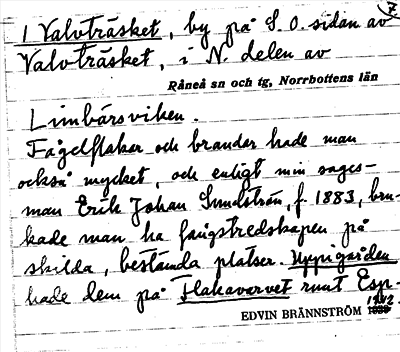 7
1 Valvträsket, by på S.O. sidan av
Valvträsket, i N. delen av
Råneå sn och tg, Norrbottens län
Limbärsviken.
Fågelflakar och brandar hade man
också mycket, och enligt min sages-
man Erik Johan Sundström, f. 1883, bru-
kade man ha fångstredskapen på
skilda, bestämda platser. Uppigården
hade dem på Flakavarvet runt Esp-
EDVIN BRÄNNSTRÖM 1942.